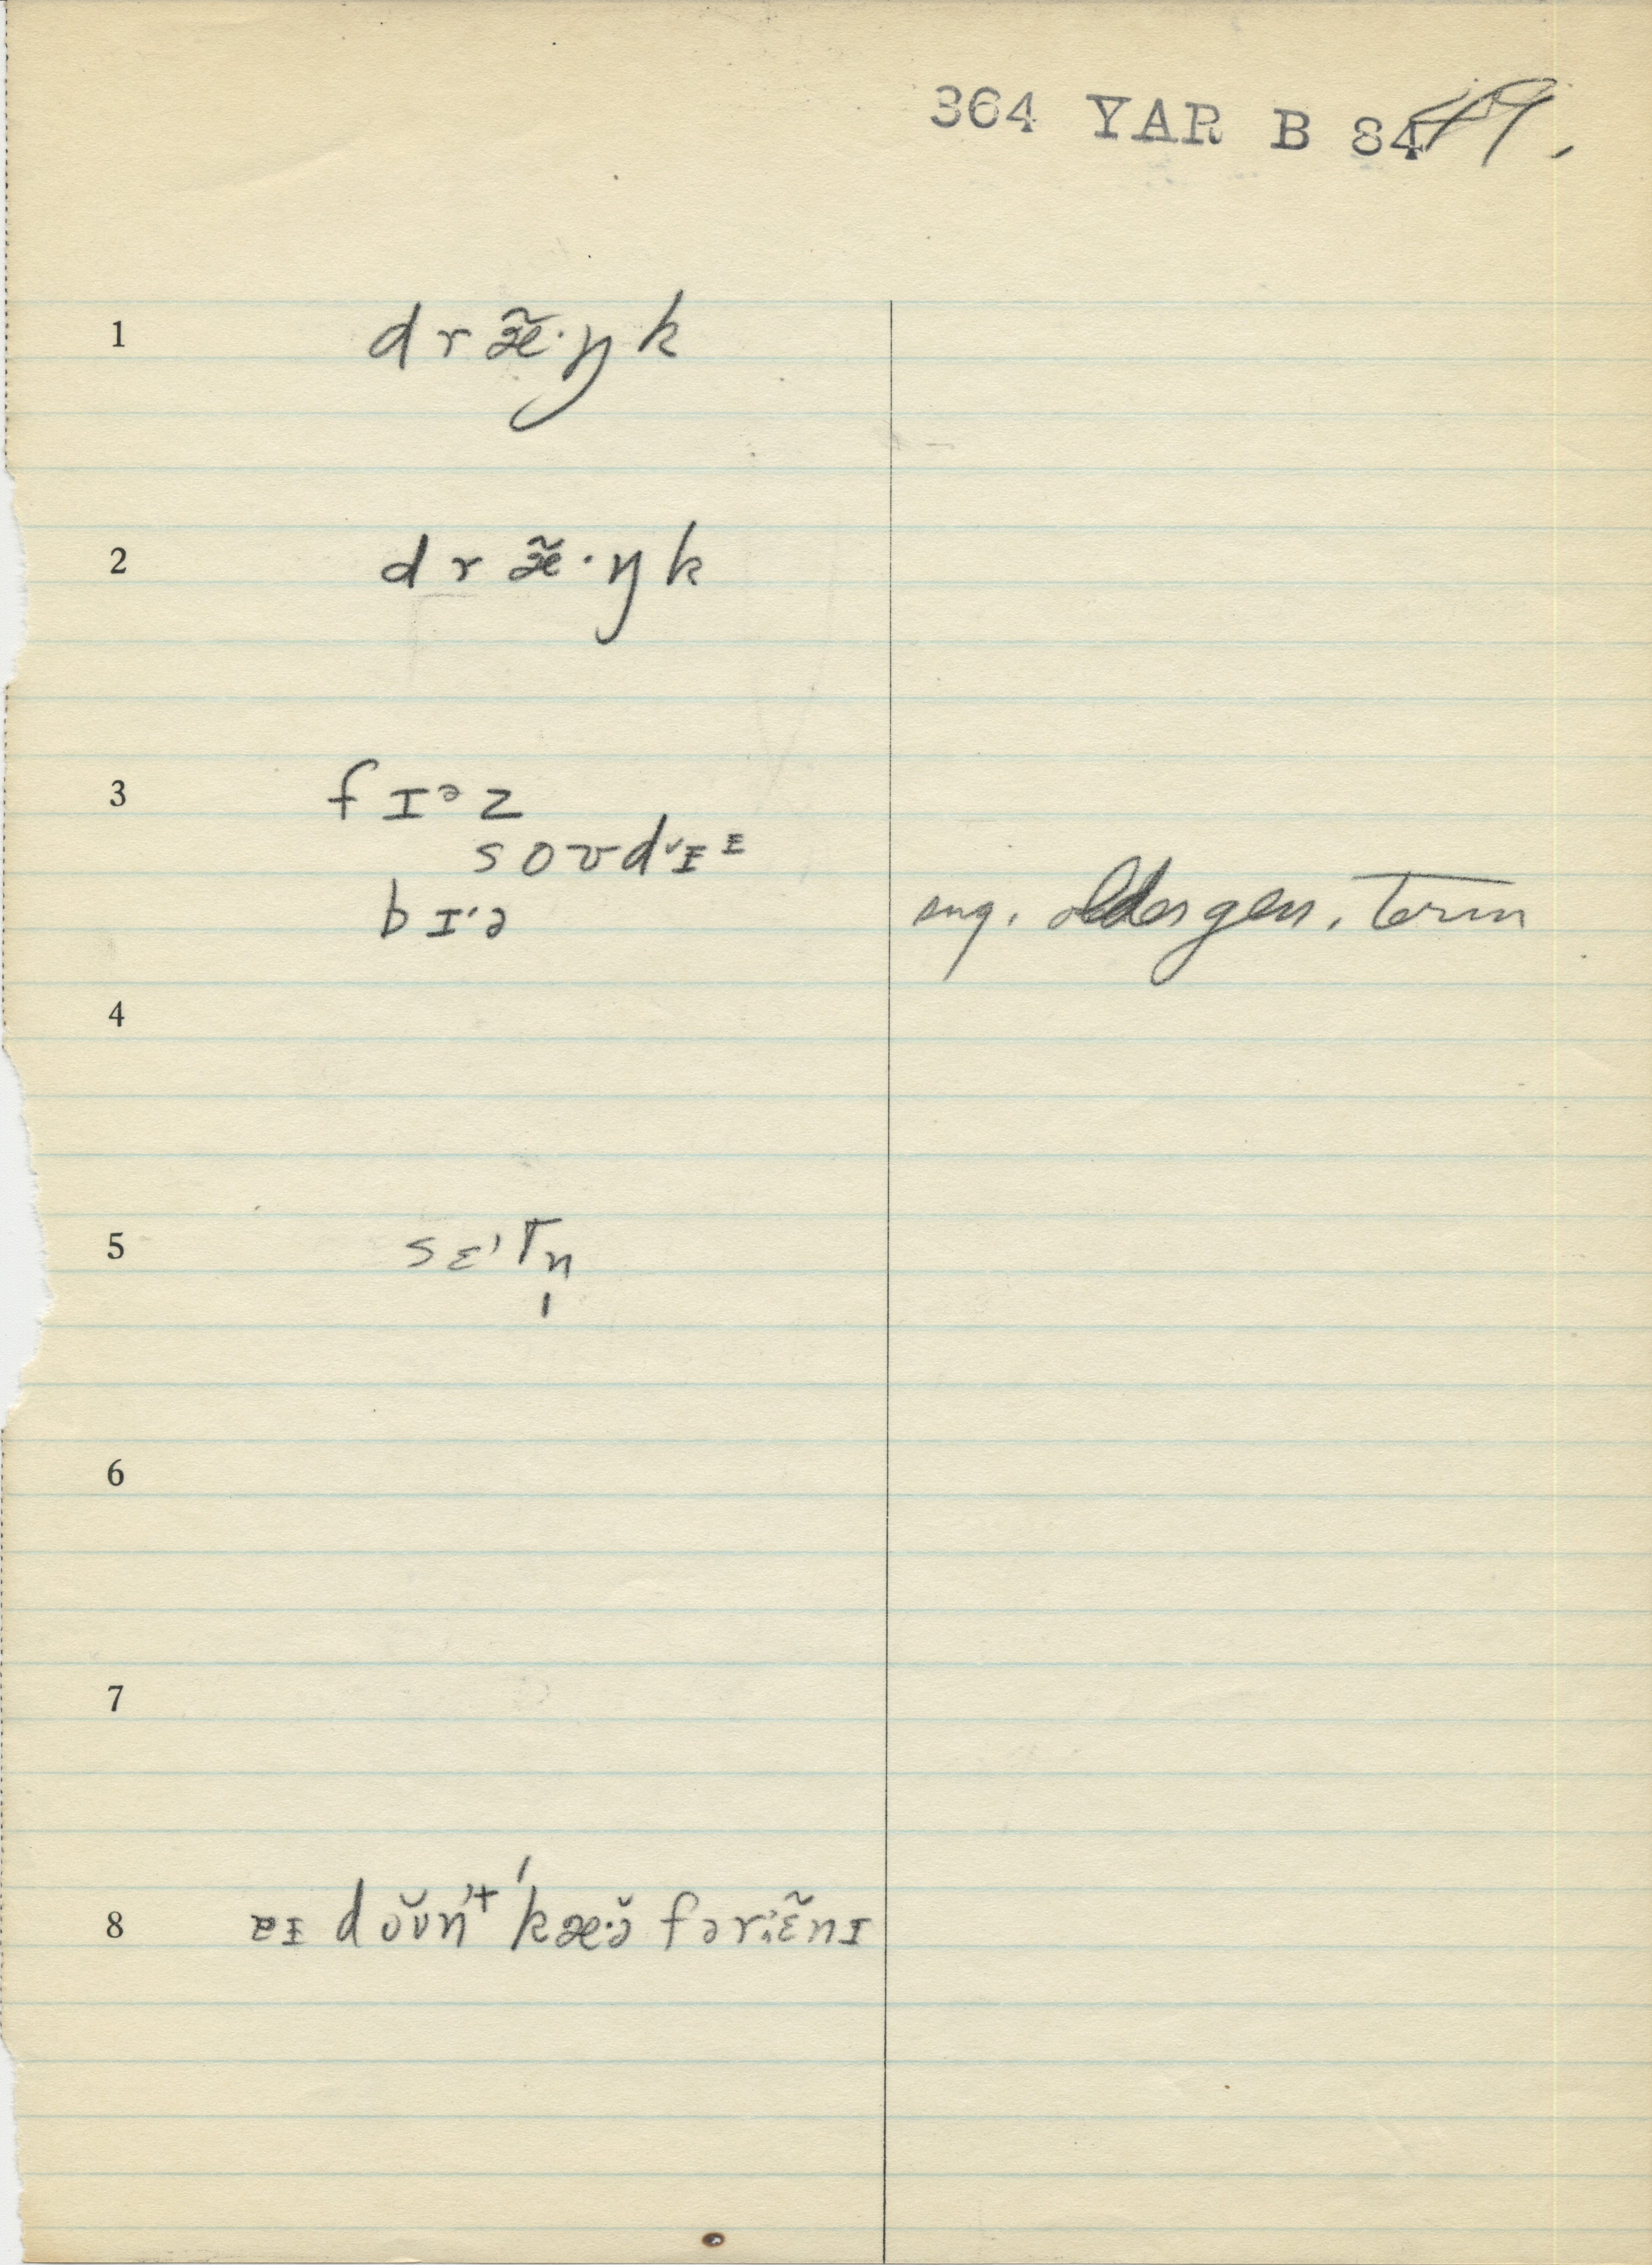 364 YAR B 84
1 d r æ̃· ŋ k
2 d r æ̃· ŋ k
3 f ɪᵊ z
s o ʊ d ˇɪ ᶦ
b ɪ· ə sug. older gen. term
4
5 s ɛ' t n̩
6
7
8 ɐɪ d ŏʊn't 'kæ·ə̆ fər ɛ̃nɪ